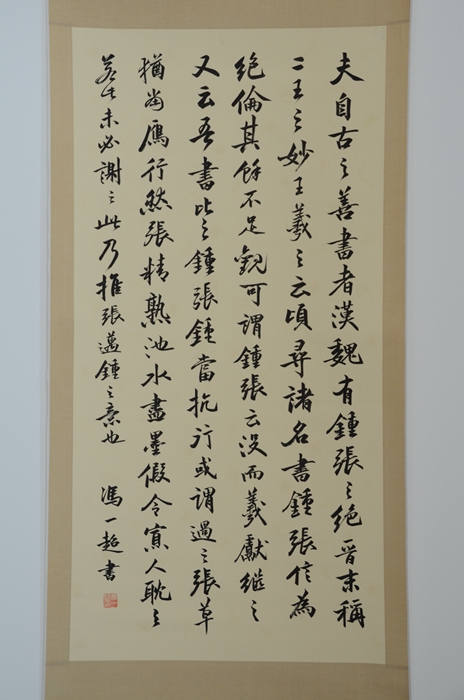 夫自古之善書者漢魏有鍾張之絕晉末稱
二王之妙王羲之云頃尋諸名書鍾張信為
絕倫其餘不足觀可謂鍾張云沒而羲獻繼之
又云吾書比之鍾張鍾當抗行或謂過之張草
猶當鴈行然張精熟池水盡墨假令寡人耽之
若此未必謝之此乃推張邁鍾之意也 馮一超書